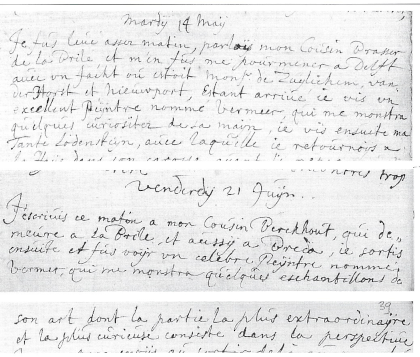 Mardy 14 Maij
Je fus levé assez matin, parlois mon Cousin Brasser
de la Brile et m'en fus me pourmener a Delft
avec un jacht ou estoit Monsr. de Zuylichem, van-
der Horst et Nieuwport, Estant arrivé je vis un
excellent Peijntre nommé Vermeer, qui me monstra
quelques curiositez de sa main, je vis ensuite ma
Tante Lodensteijn, avec laquelle je retournois a
la
trop
Venderdy 21 Juijn..
J'escrivis ce matin a mon Cousin Berckhout, qui de„
meure a la Brile, et aussy a Breda, je sortis
ensuite et fus voijr un celebre Peijntre nommé
Vermer, qui me monstra quelques eschantillons de
39
son art dont la partie la plus extraordinaijre
et la plus curieuse consiste dans la perspective